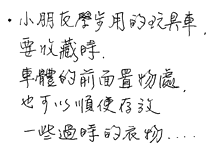 ・小朋友學步用的玩具車,
要收藏時.
車體的前面置物處,
也可以順便存放
一些過時的衣物....